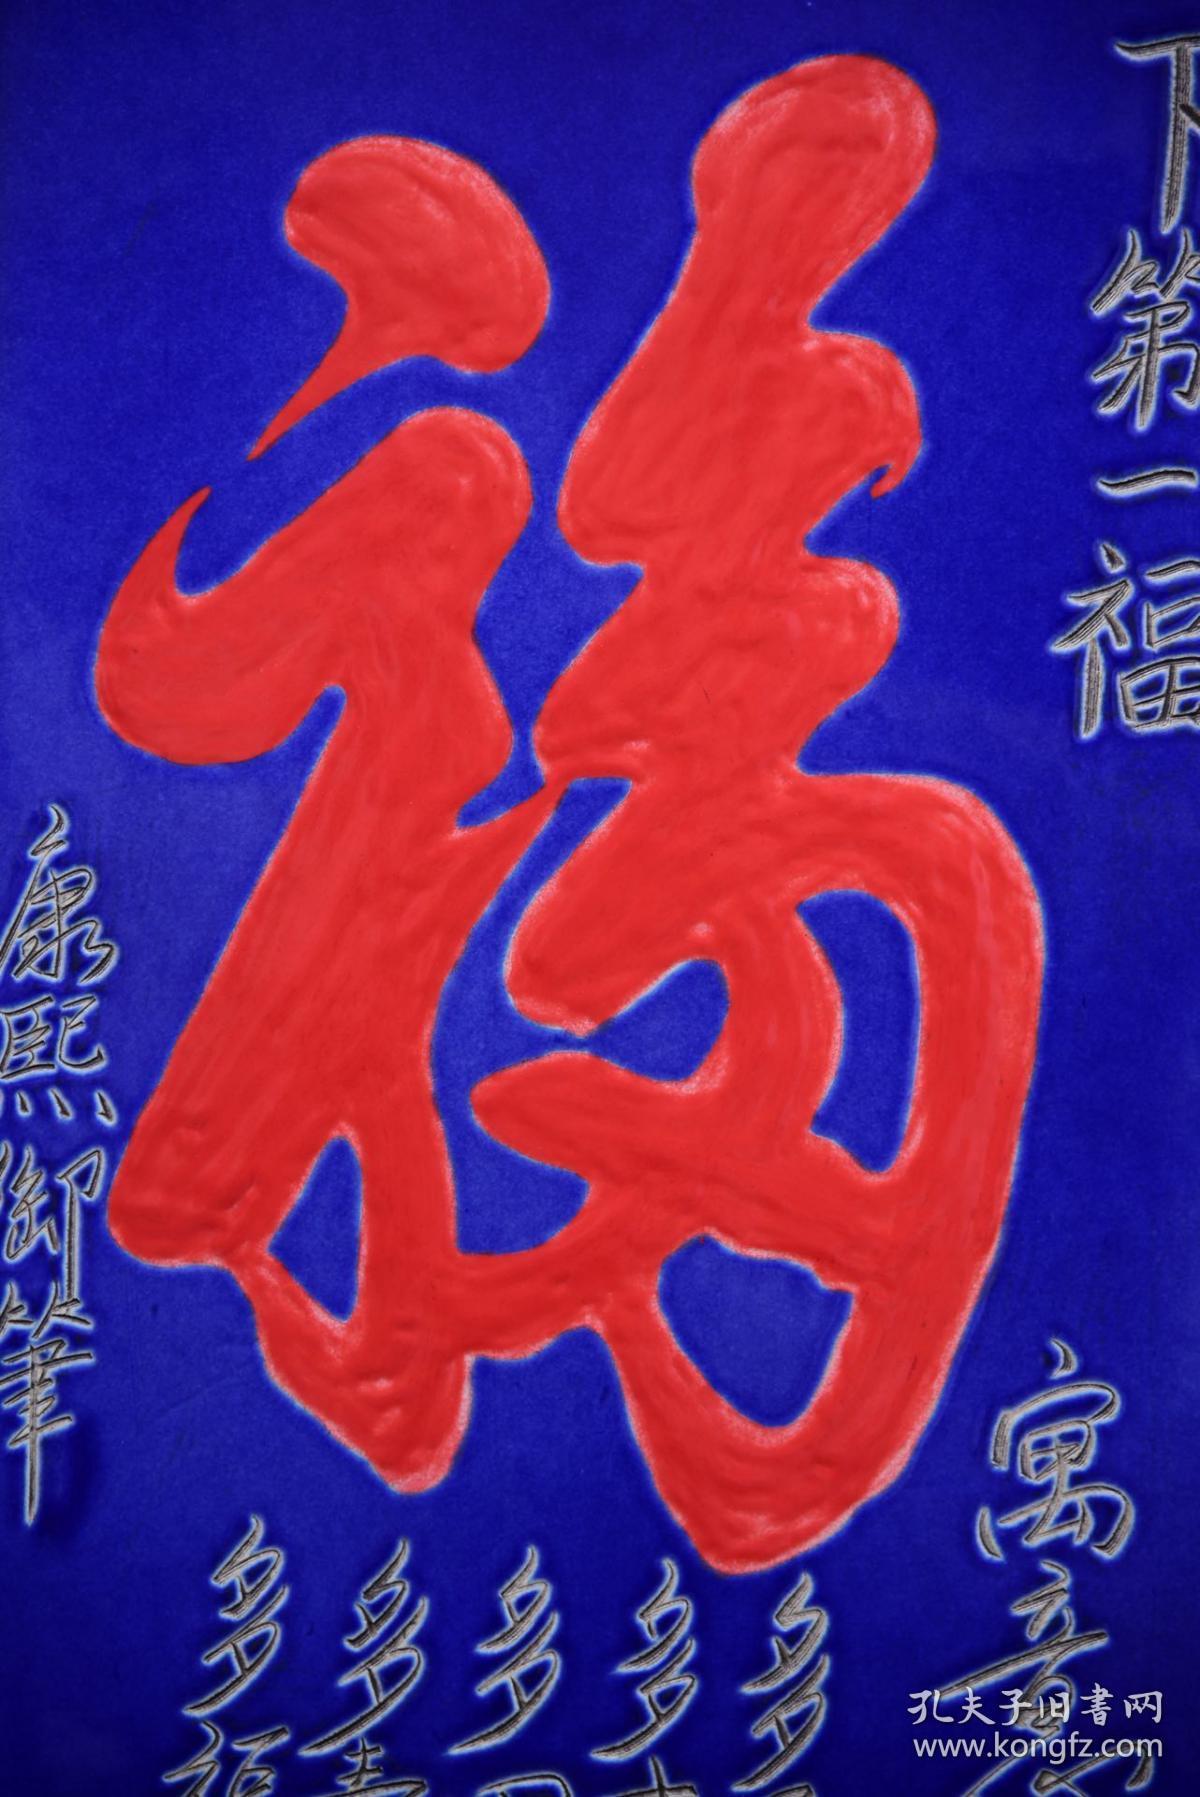 下第一福
福
康熙御筆
寓意
多福
多寿
多
多才
多
孔夫子旧書网
www.kongfz.com